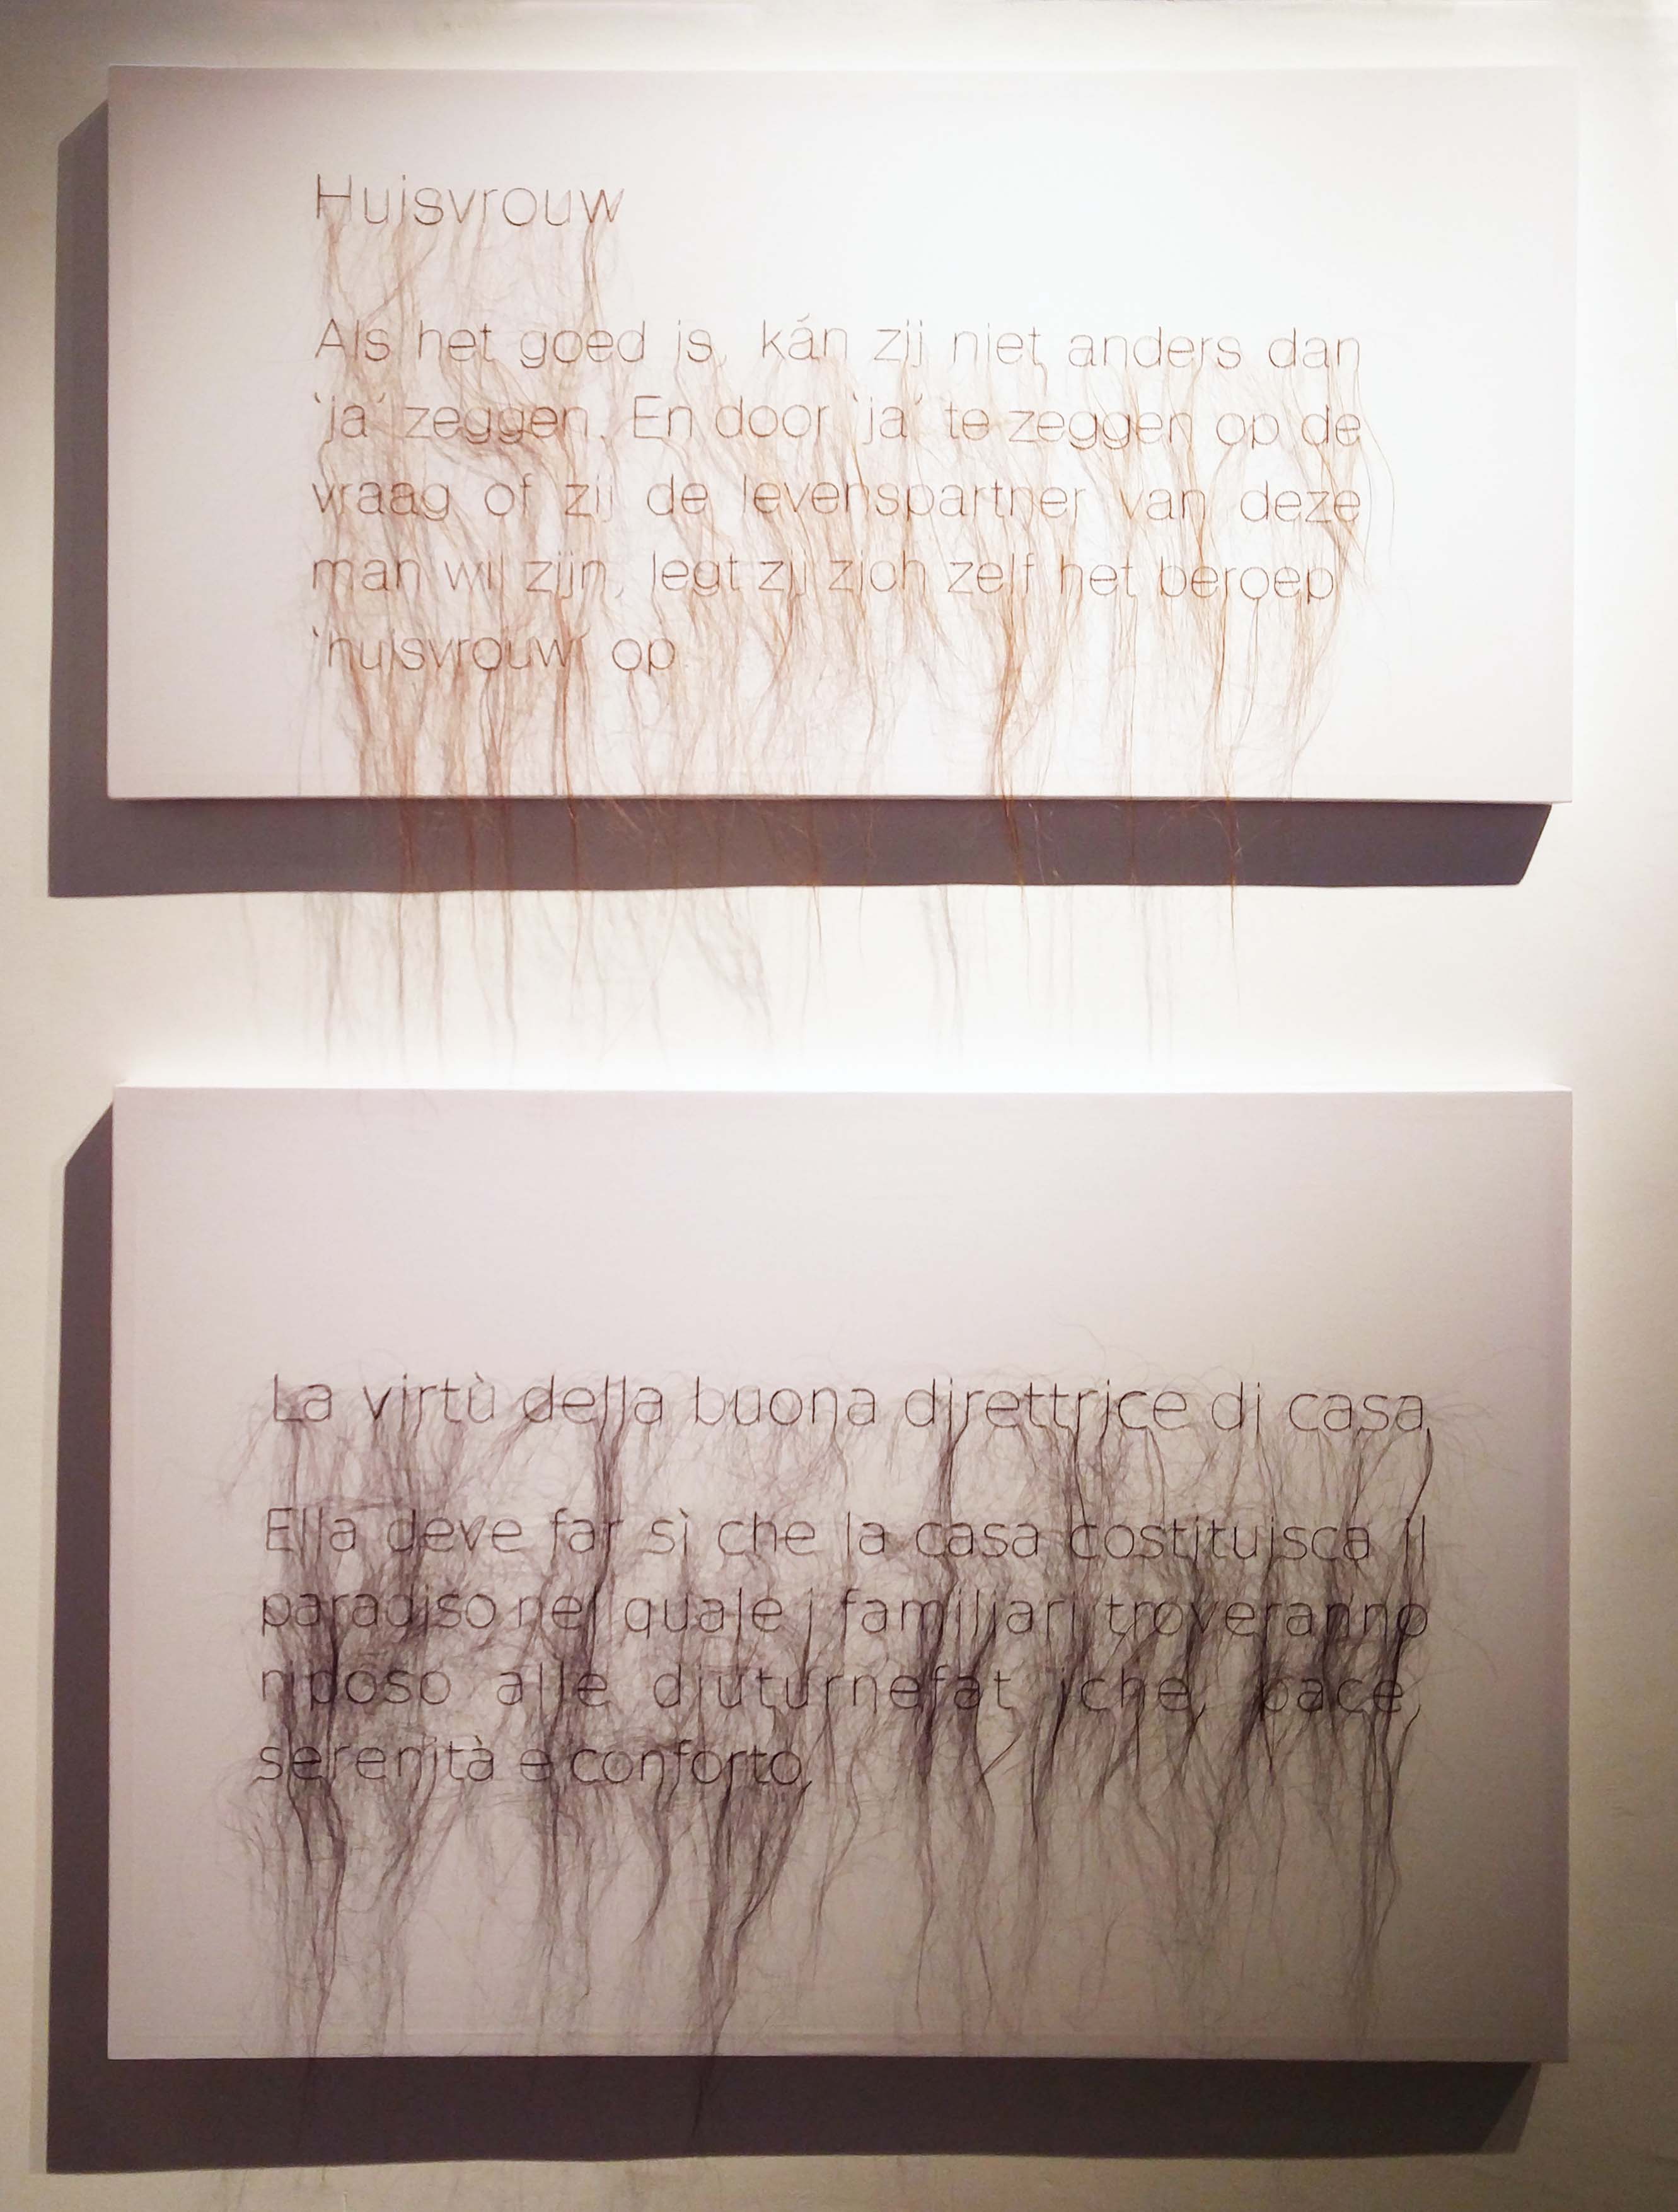 Huisvrouw
Als het goed is, kán zij niet anders dan
'ja' zeggen. En door 'ja' te zeggen op de
vraag of zij de levenspartner van deze
man wil zijn, legt zij zich zelf het beroep
'huisvrouw' op.
La virtù della buona direttrice di casa,
Ella deve far sì che la casa costituisca il
paradiso nel quale i familiari troveranno
riposo alle diuturnefat iche, pace,
serenità e conforto,